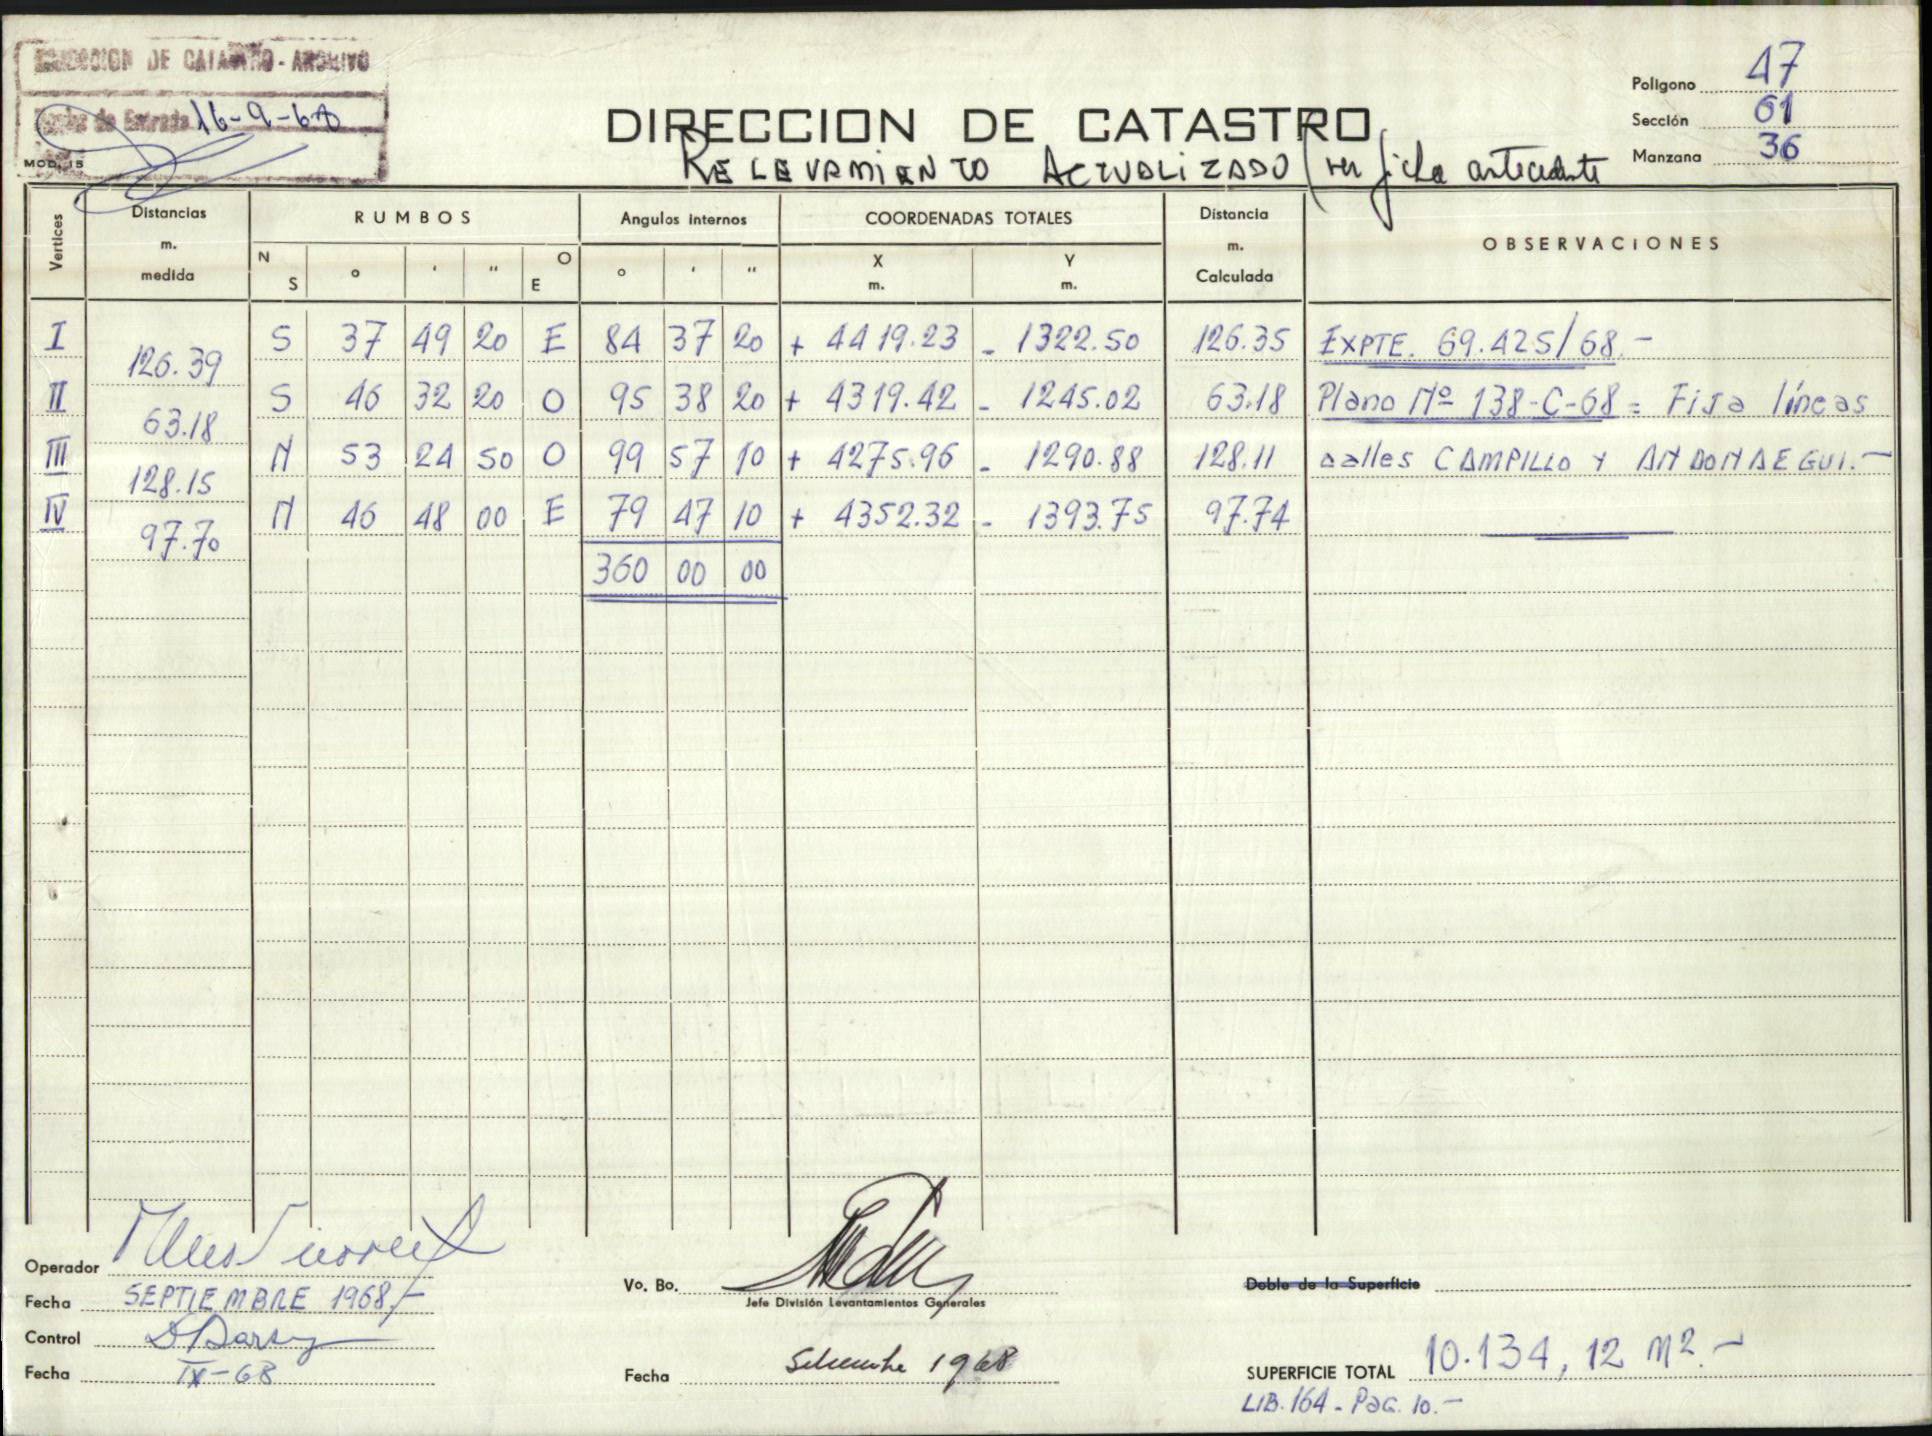 DIRECCION DE CATASTRO - ARCHIVO
de Entrada 16-9-68
MOD. 15
DIRECCION DE CATASTRO
RELEVAMIENTO ACTUALIZADO (ver ficha antecedente
Polígono 47
Sección 61
Manzana 36
Vertices Distancias m. medida RUMBOS Angulos internos COORDENADAS TOTALES Distancia m. Calculada OBSERVACIONES
N S ° ' " O E ° ' " X m. Y m.
I 126.39 S 37 49 20 E 84 37 20 + 4419.23 - 1322.50 126.35 EXPTE. 69.425/68.-
II 63.18 S 46 32 20 O 95 38 20 + 4319.42 - 1245.02 63.18 Plano Nº 138-C-68 = Fija líneas
III 128.15 N 53 24 50 O 99 57 10 + 4275.96 - 1290.88 128.11 calles CAMPILLO Y ANDONAEGUI.-
IV 97.70 N 46 48 00 E 79 47 10 + 4352.32 - 1393.75 97.74
360 00 00
Operador
Fecha SEPTIEMBRE 1968.-
Control
Fecha IX-68
Vo. Bo.
Jefe División Levantamientos Generales
Fecha Setiembre 1968
Doble de la Superficie
SUPERFICIE TOTAL 10.134,12 M2.-
LIB. 164 - PAG. 10.-